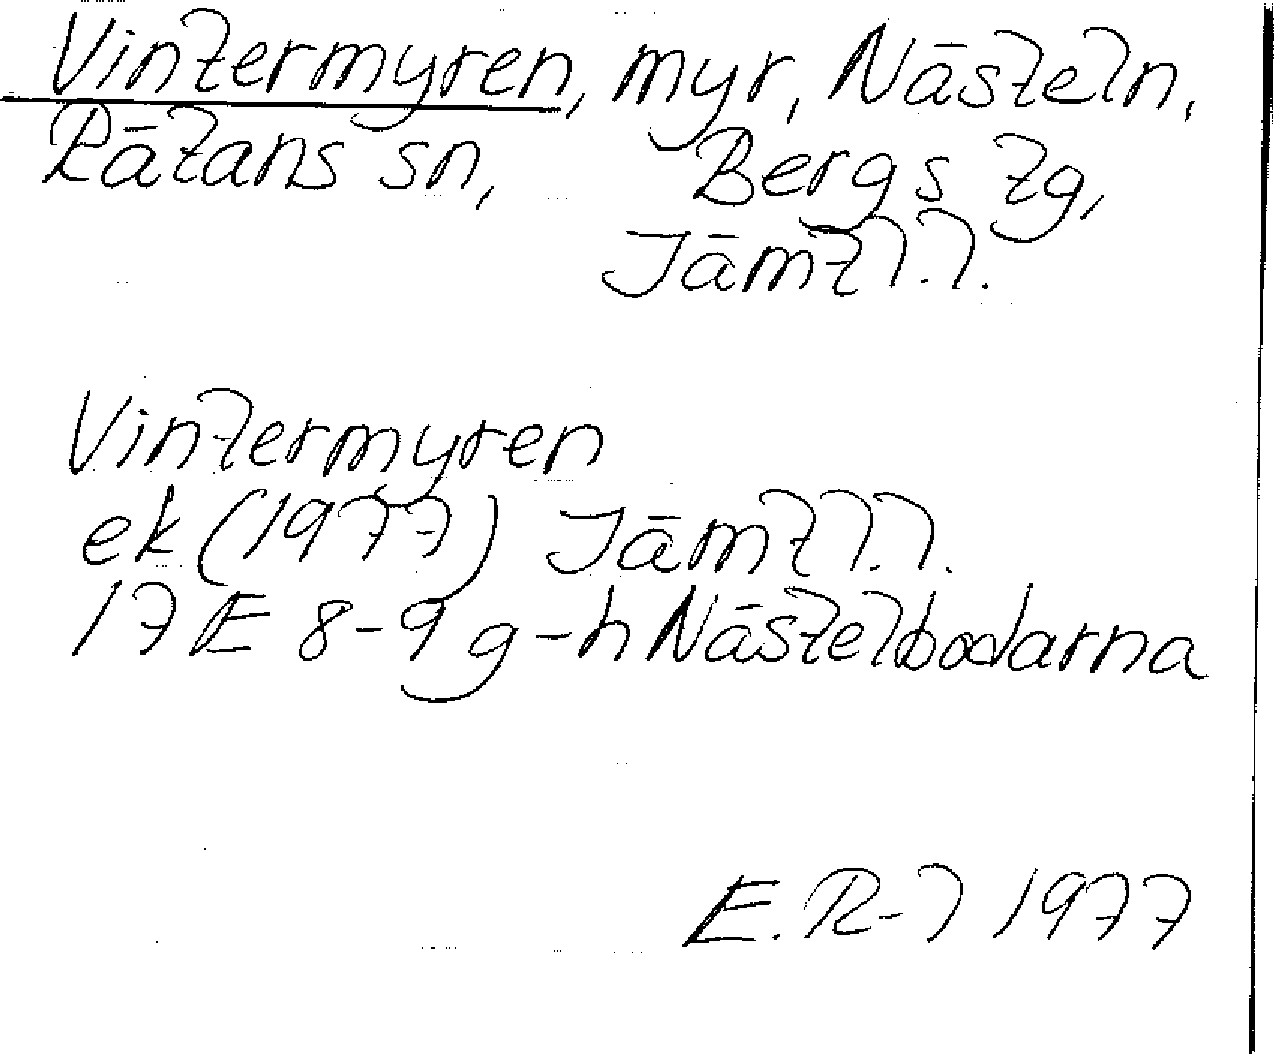 Vintermyren, myr, Nästeln,
Rätans sn, Bergs tg,
Jämtl.l.
Vintermyren
ek (1977) Jämtl.l.
17E 8-9 g-h Nästelbodarna
E. R-l 1977